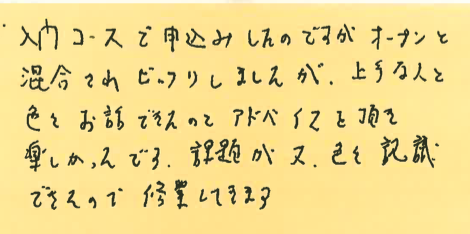 ・入門コースで申込みしたのですがオープンと
混合されビックリしましたが、上手な人と
色々お話できたのとアドバイスを頂き
楽しかったです。課題が又、色々認識
できたので修業してきます